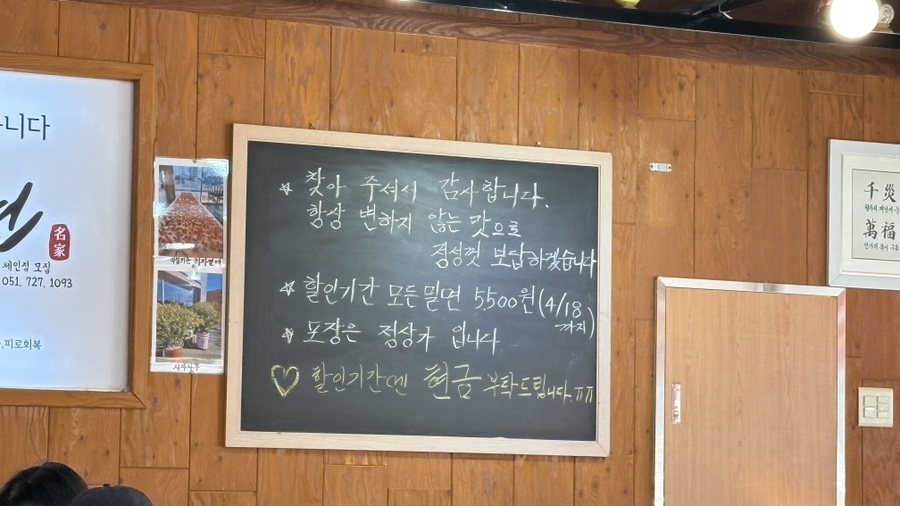 니다
名家
체인점 모집
051. 727. 1093
피로회복
☆ 찾아 주셔서 감사합니다.
항상 변하지 않는 맛으로
정성껏 보답하겠습니다
☆ 할인기간 모든밀면 5,500원(4/18까지)
☆ 포장은 정상가 입니다
♡ 할인기간엔 현금 부탁드립니다.ㅠㅠ
千災
萬福